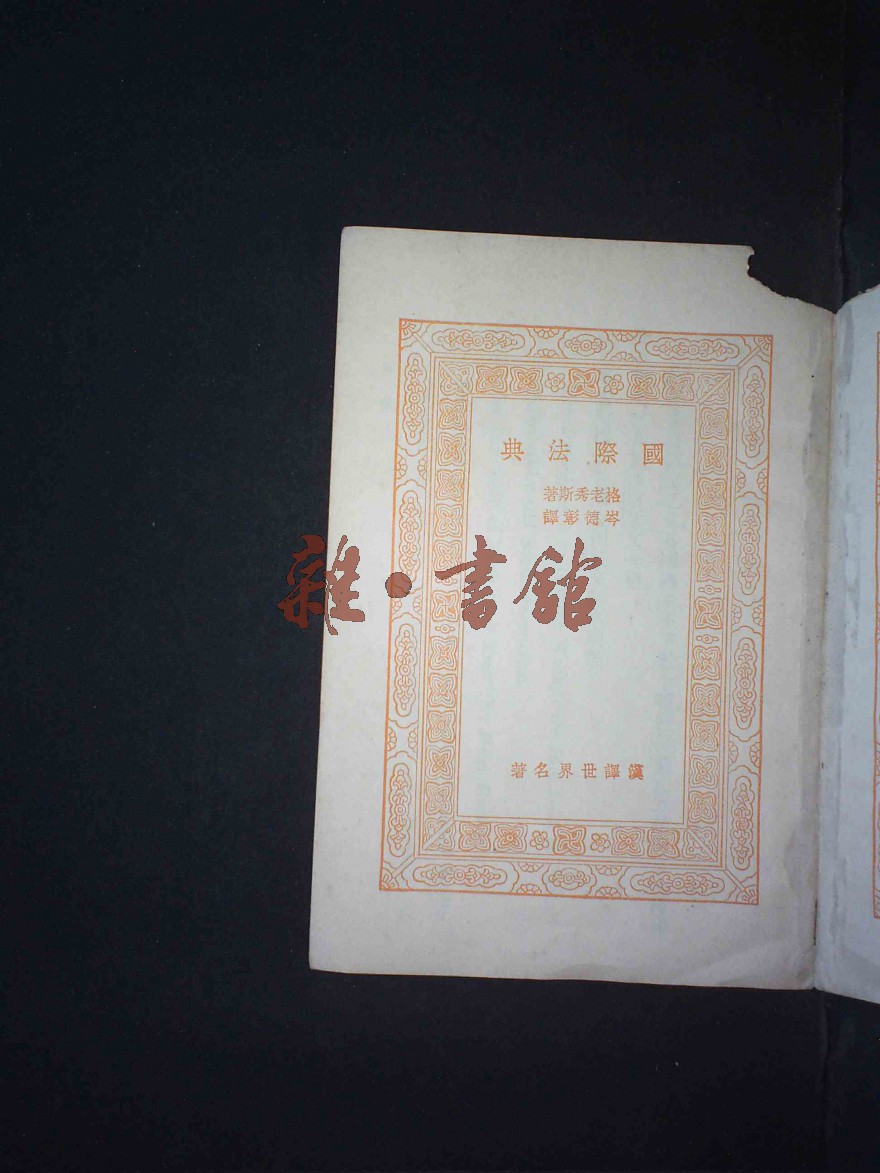 國際法典
格老秀斯著
岑德彰譯
雜·書館
漢譯世界名著